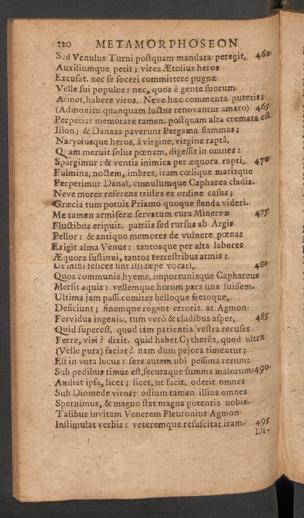 220 METAMORPHOSEON
Sed Venulus Turni postquam mandata peregit, 460
Auxiliumque petit; vires Ætolius heros
Excusat. nec se soceri committere pugnæ
Velle sui populos: nec, quos è gente suorum
Armet, habere viros. Neve hæc commenta putetis;
(Admonitu quanquam luctus renovantur amaro) 465
Perpetiar memorare tamen. postquam alta cremata est
Ilion; & Danaas paverunt Pergama flammas;
Naryciusque heros, à virgine, virgine raptâ,
Quam meruit solus pœnam, digessit in omnes:
Spargimur: & ventis inimica per æquora rapti, 470
Fulmina, noctem, imbres, iram cœlique marisque
Perpetimur Danai, cumulumque Capharea cladis.
Neve morer referens tristes ex ordine casus;
Græcia tum potuit Priamo quoque flenda videri.
Me tamen armiferæ servatum cura Minervæ 475
Fluctibus eripuit. patriis sed rursus ab Argis
Pellor: & antiquo memores de vulnere pœnas
Exigit alma Venus: tantosque per alta labores
Æquora sustinui, tantos terrestribus armis:
Ut mihi felices sint illi sæpe vocati, 480
Quos communis hyems, importunusque Caphareus
Mersit aquis: vellemque horum pars una fuissem.
Ultima jam passi comites belloque fretoque,
Deficiunt; finemque rogant erroris. at Agmon
Fervidus ingenio, tum verò & cladibus asper, 485
Quid superest, quod jam patientia vestra recuset
Ferre, viri? dixit. quid habet Cytherêa, quod ultra
(Velle puta) faciat? nam dum pejora timentur;
Est in vota locus: sors autem ubi pessima rerum:
Sub pedibus timor est, securaque summa malorum. 490
Audiat ipsa, licet; licet, ut facit, oderit omnes
Sub Diomede viros: odium tamen illius omnes
Spernimus, & magno stat magna potentia nobis.
Talibus invitam Venerem Pleuronius Agmon
Instimulat verbis: veteremque resuscitat iram. 495
Di-